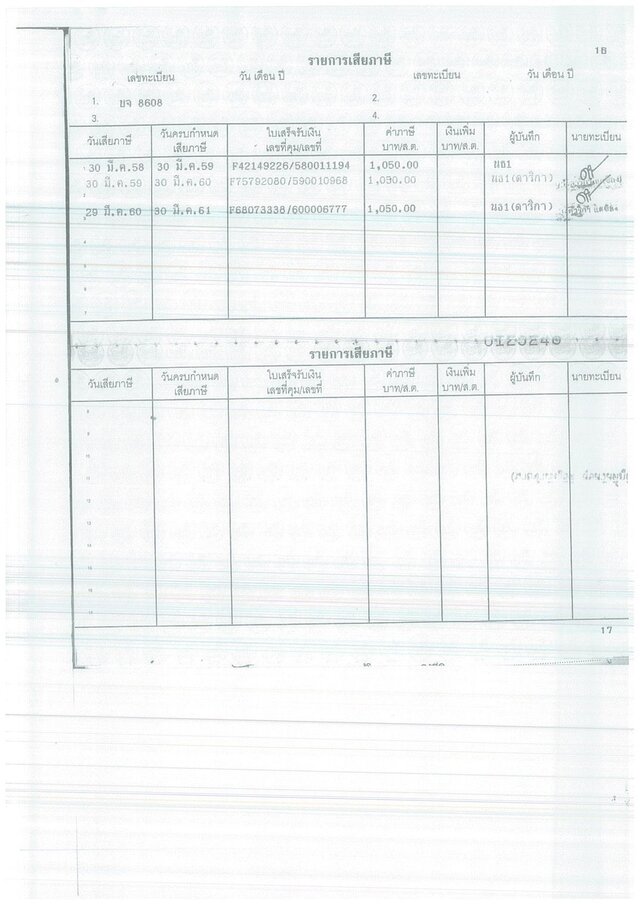 16
รายการเสียภาษี
เลขทะเบียน วัน เดือน ปี เลขทะเบียน วัน เดือน ปี
1. บจ 8608 2.
3. 4.
วันเสียภาษี วันครบกำหนดเสียภาษี ใบเสร็จรับเงิน เลขที่คุม/เลขที่ ค่าภาษี บาท/ส.ต. เงินเพิ่ม บาท/ส.ต. ผู้บันทึก นายทะเบียน
30 มี.ค.58 30 มี.ค.59 F42149226/580011194 1,050.00 นอ1
30 มี.ค.59 30 มี.ค.60 F75792080/590010968 1,050.00 นอ1(ดาริกา)
29 มี.ค.60 30 มี.ค.61 F68073338/600006777 1,050.00 นอ1(ดาริกา)
4
5
6
7
0123240
รายการเสียภาษี
วันเสียภาษี วันครบกำหนดเสียภาษี ใบเสร็จรับเงิน เลขที่คุม/เลขที่ ค่าภาษี บาท/ส.ต. เงินเพิ่ม บาท/ส.ต. ผู้บันทึก นายทะเบียน
8
9
10
11
12
13
14
15
16
17